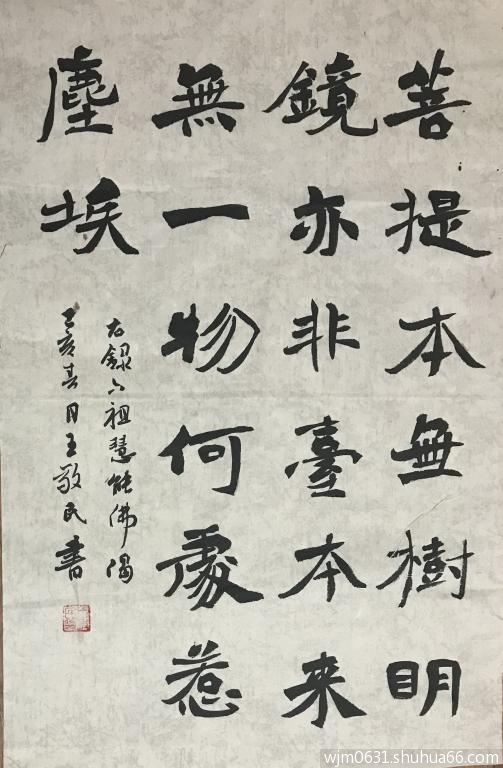 菩提本無樹明
鏡亦非臺本来
無一物何處惹
塵埃
右錄六祖慧能佛偈
己亥春月王敬民書
wjm0631.shuhua66.com